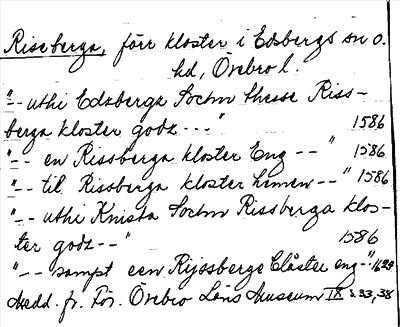 Riseberga, förr kloster i Edsbergs sn o.
hd, Örebro l.
"-- uthi Edzberga Sochn thesse Riss-
berga kloster godz ---" 1586
"-- en Rissberga kloster Eng --" 1586
"-- til Rissberga kloster hemen --" 1586
"-- uthi Knista Sochn Rissberga klos-
ter godz --" 1586
"-- sampt een Rijssberge Clåster eng --" 1624
Medd. fr. För. Örebro Läns Museum IX s. 33, 38